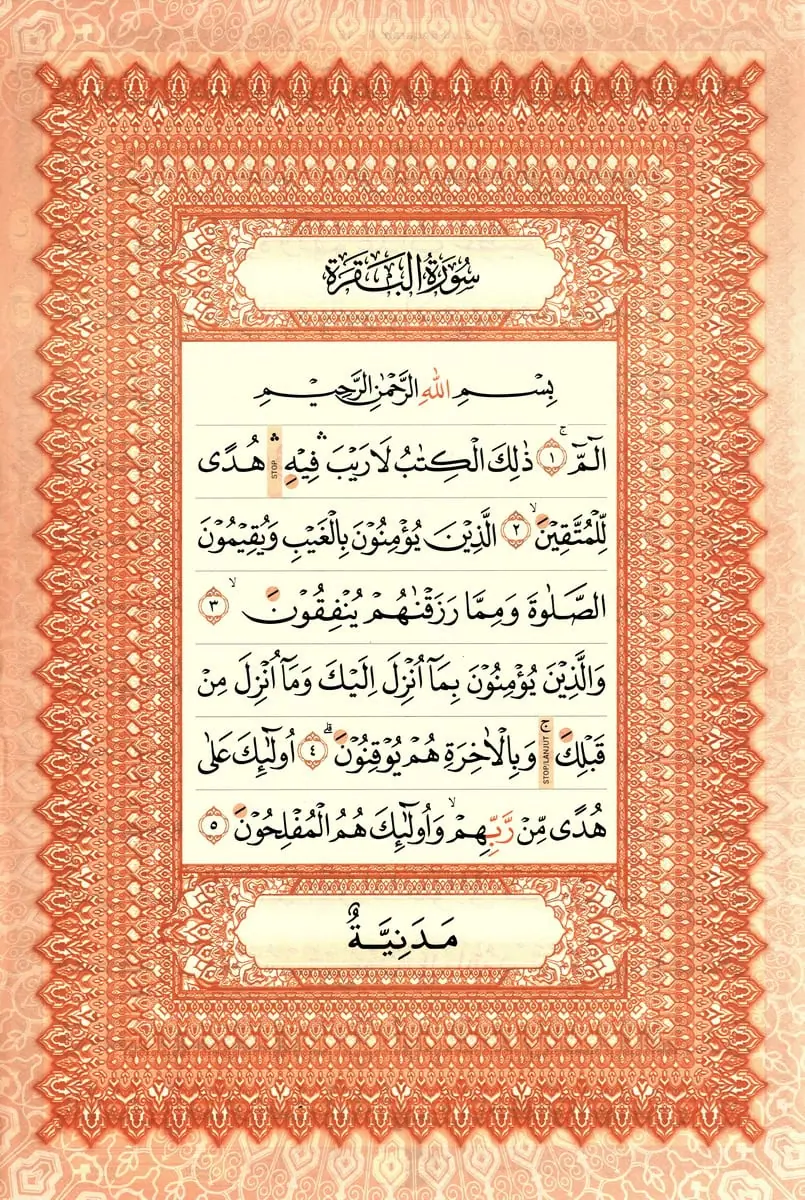 سُوْرَةُ الْبَقَرَةِ
بِسْمِ اللّٰهِ الرَّحْمٰنِ الرَّحِيْمِ
الۤمّۤ ۚ ﴿١﴾ ذٰلِكَ الْكِتٰبُ لَا رَيْبَ ۛ فِيْهِ ۛ STOP هُدًى
لِّلْمُتَّقِيْنَۙ ﴿٢﴾ الَّذِيْنَ يُؤْمِنُوْنَ بِالْغَيْبِ وَيُقِيْمُوْنَ
الصَّلٰوةَ وَمِمَّا رَزَقْنٰهُمْ يُنْفِقُوْنَ ۙ ﴿٣﴾
وَالَّذِيْنَ يُؤْمِنُوْنَ بِمَآ اُنْزِلَ اِلَيْكَ وَمَآ اُنْزِلَ مِنْ
قَبْلِكَ ۚ STOP/LANJUT وَبِالْاٰخِرَةِ هُمْ يُوْقِنُوْنَۗ ﴿٤﴾ اُولٰۤىِٕكَ عَلٰى
هُدًى مِّنْ رَّبِّهِمْ ۙ وَاُولٰۤىِٕكَ هُمُ الْمُفْلِحُوْنَ ﴿٥﴾
مَدَنِيَّةٌ